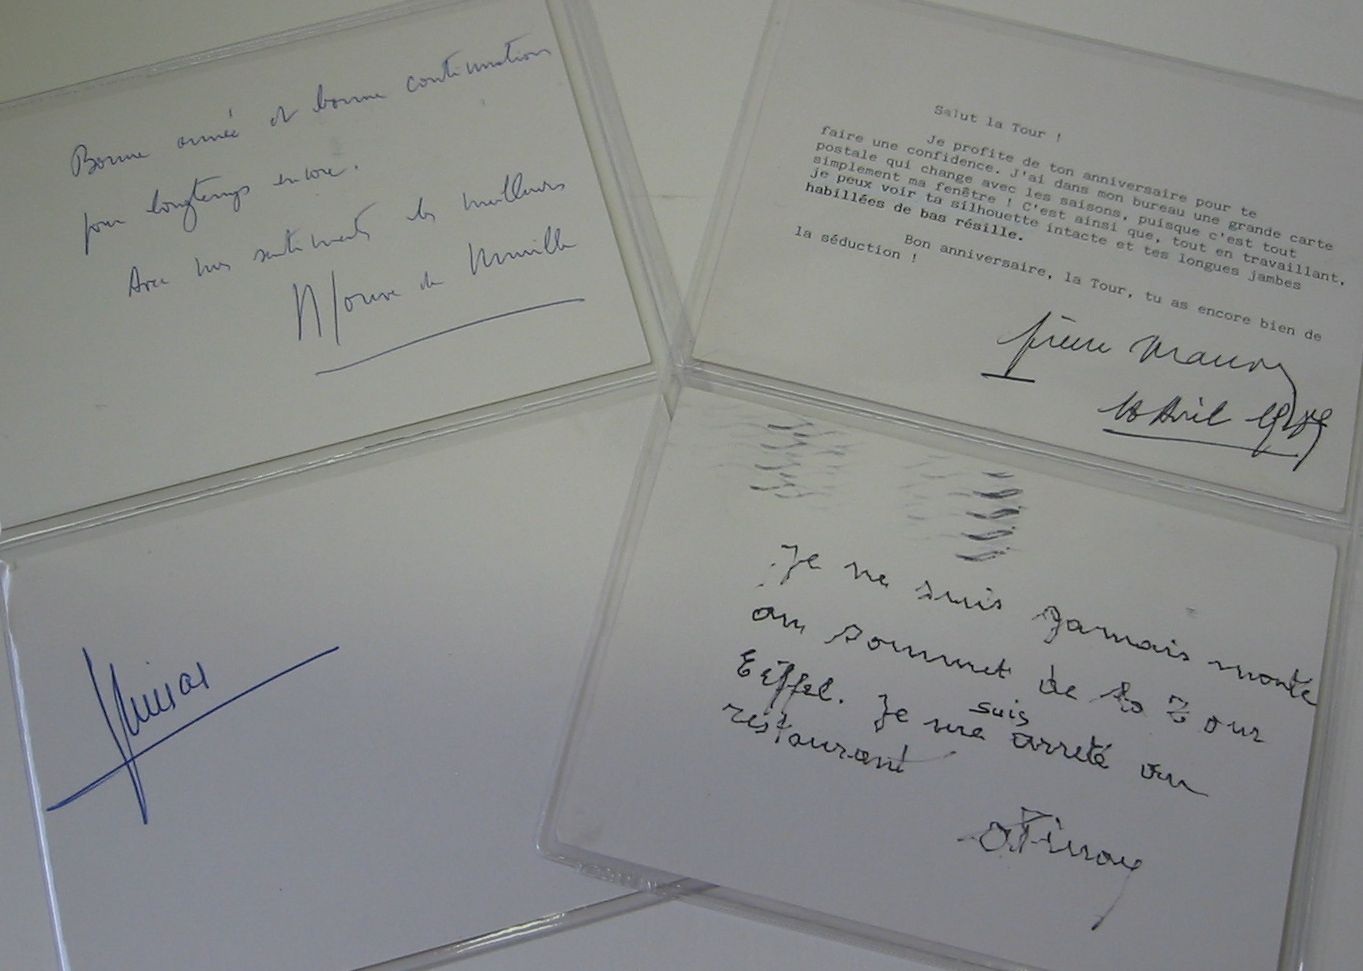 Bonne année et bonne continuation
pour longtemps encore.
Avec mes sentiments les meilleurs
M Couve de Murville
Salut la Tour !
Je profite de ton anniversaire pour te
faire une confidence. J'ai dans mon bureau une grande carte
postale qui change avec les saisons, puisque c'est tout
simplement ma fenêtre ! C'est ainsi que, tout en travaillant,
je peux voir ta silhouette intacte et tes longues jambes
habillées de bas résille.
Bon anniversaire, la Tour, tu as encore bien de
la séduction !
Pierre Mauroy
Avril
Je ne suis jamais monté
au sommet de la Tour
Eiffel. Je me suis arrêté au
restaurant
A Pinay